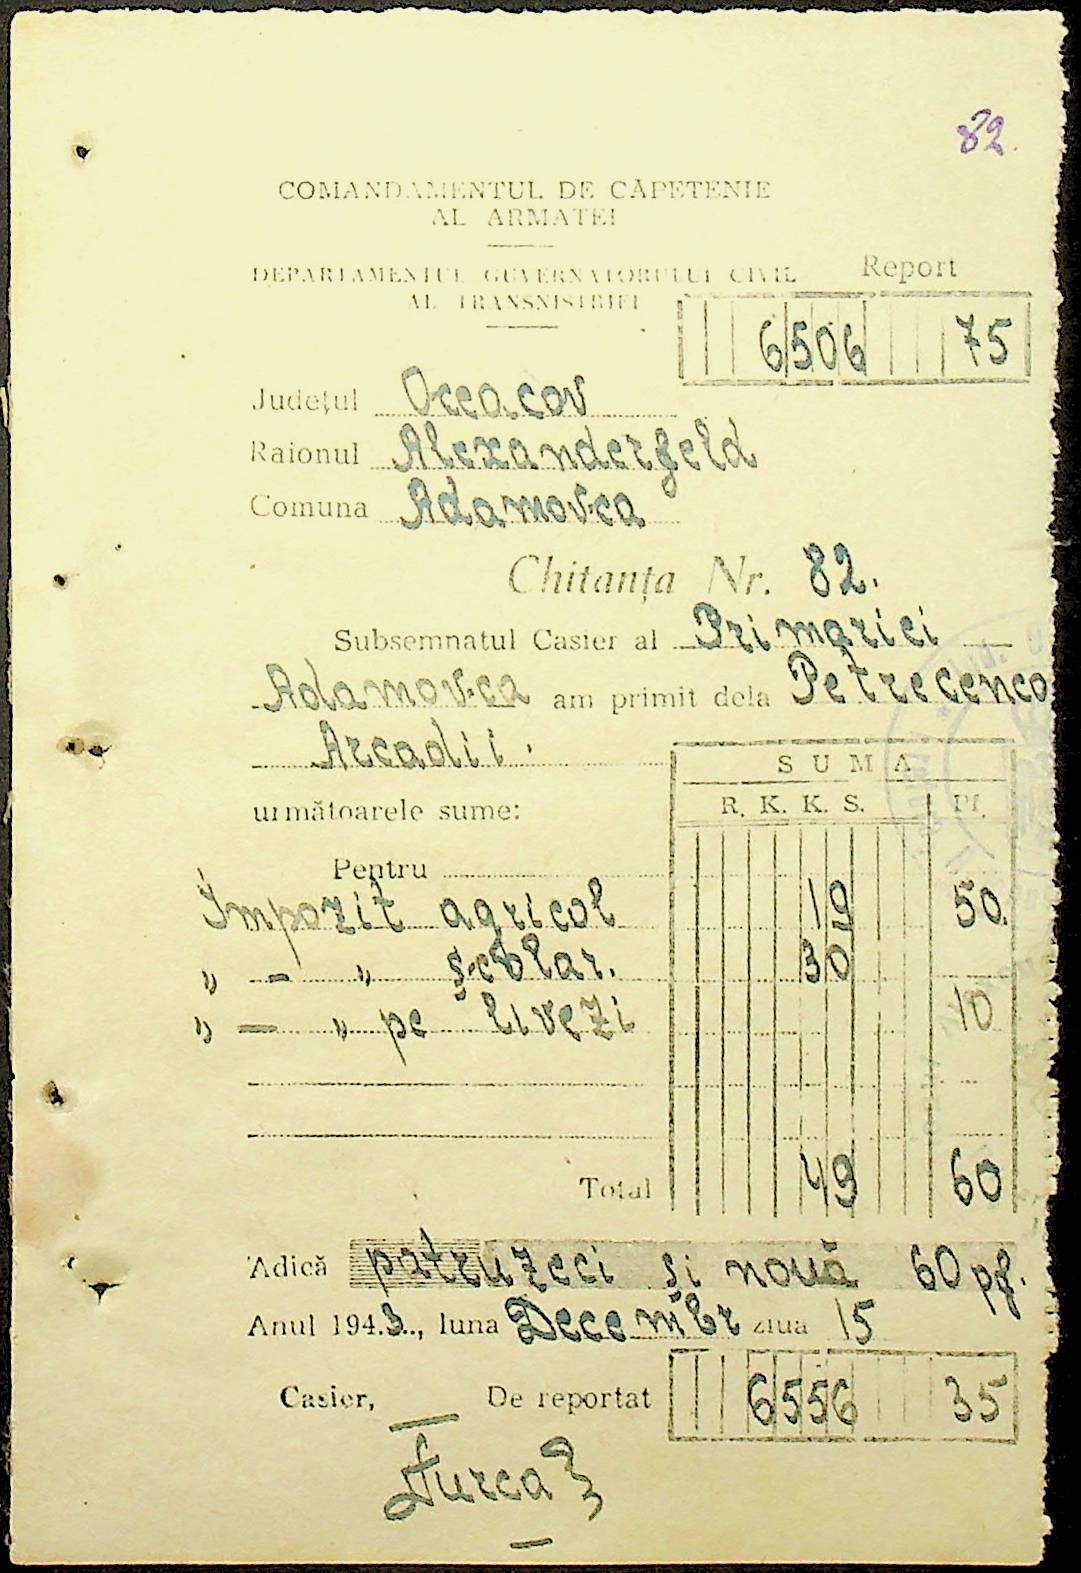 82.
COMANDAMENTUL DE CĂPETENIE
AL ARMATEI
DEPARTAMENTUL GUVERNATORULUI CIVIL
AL TRANSNISTRIEI
Report
6506 75
Județul Occacov
Raionul Alexanderfeld
Comuna Adamovca
Chitanța Nr. 82.
Subsemnatul Casier al Primariei
Adamovca am primit dela Petrecenco
Arcadii.
SUMA
R. K. K. S. Pf.
următoarele sume:
Pentru
Impozit agricol 19 50.
„ - „ școlar. 30
„ — „ pe livezi 10
Total 49 60
Adică patruzeci și nouă 60 pf.
Anul 1943., luna Decembr ziua 15
Casier, De reportat 6556 35